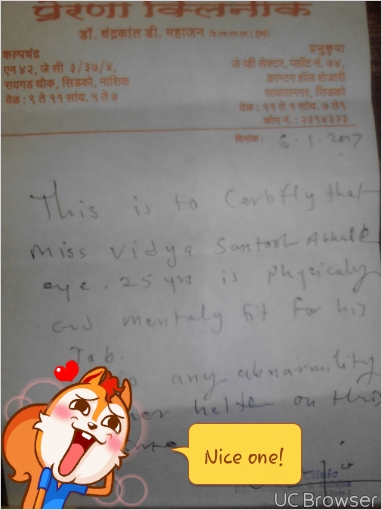 प्रेरणा क्लिनीक
डॉ. चंद्रकांत डी. महाजन
कल्पचंद्र
एन ४२, जे सी ३/३७/४,
रायगड चौक, सिडको, नाशिक
वेळ : ९ ते ११ सायं. ५ ते ७
प्रभुकृपा
जे व्ही सेक्टर, प्लॉट नं. ७४,
सिडको
वेळ : ११ ते १ सायं. ७ ते ९
फोन नं. : २३९४३२३
दिनांक : 6-1-2017
This is to Certify that
Miss Vidya Santosh
eye. 25 yrs is physicaly
and mentaly fit for his
Job.
any abnarmility
her helth on this
Nice one!
Clinic
UC Browser